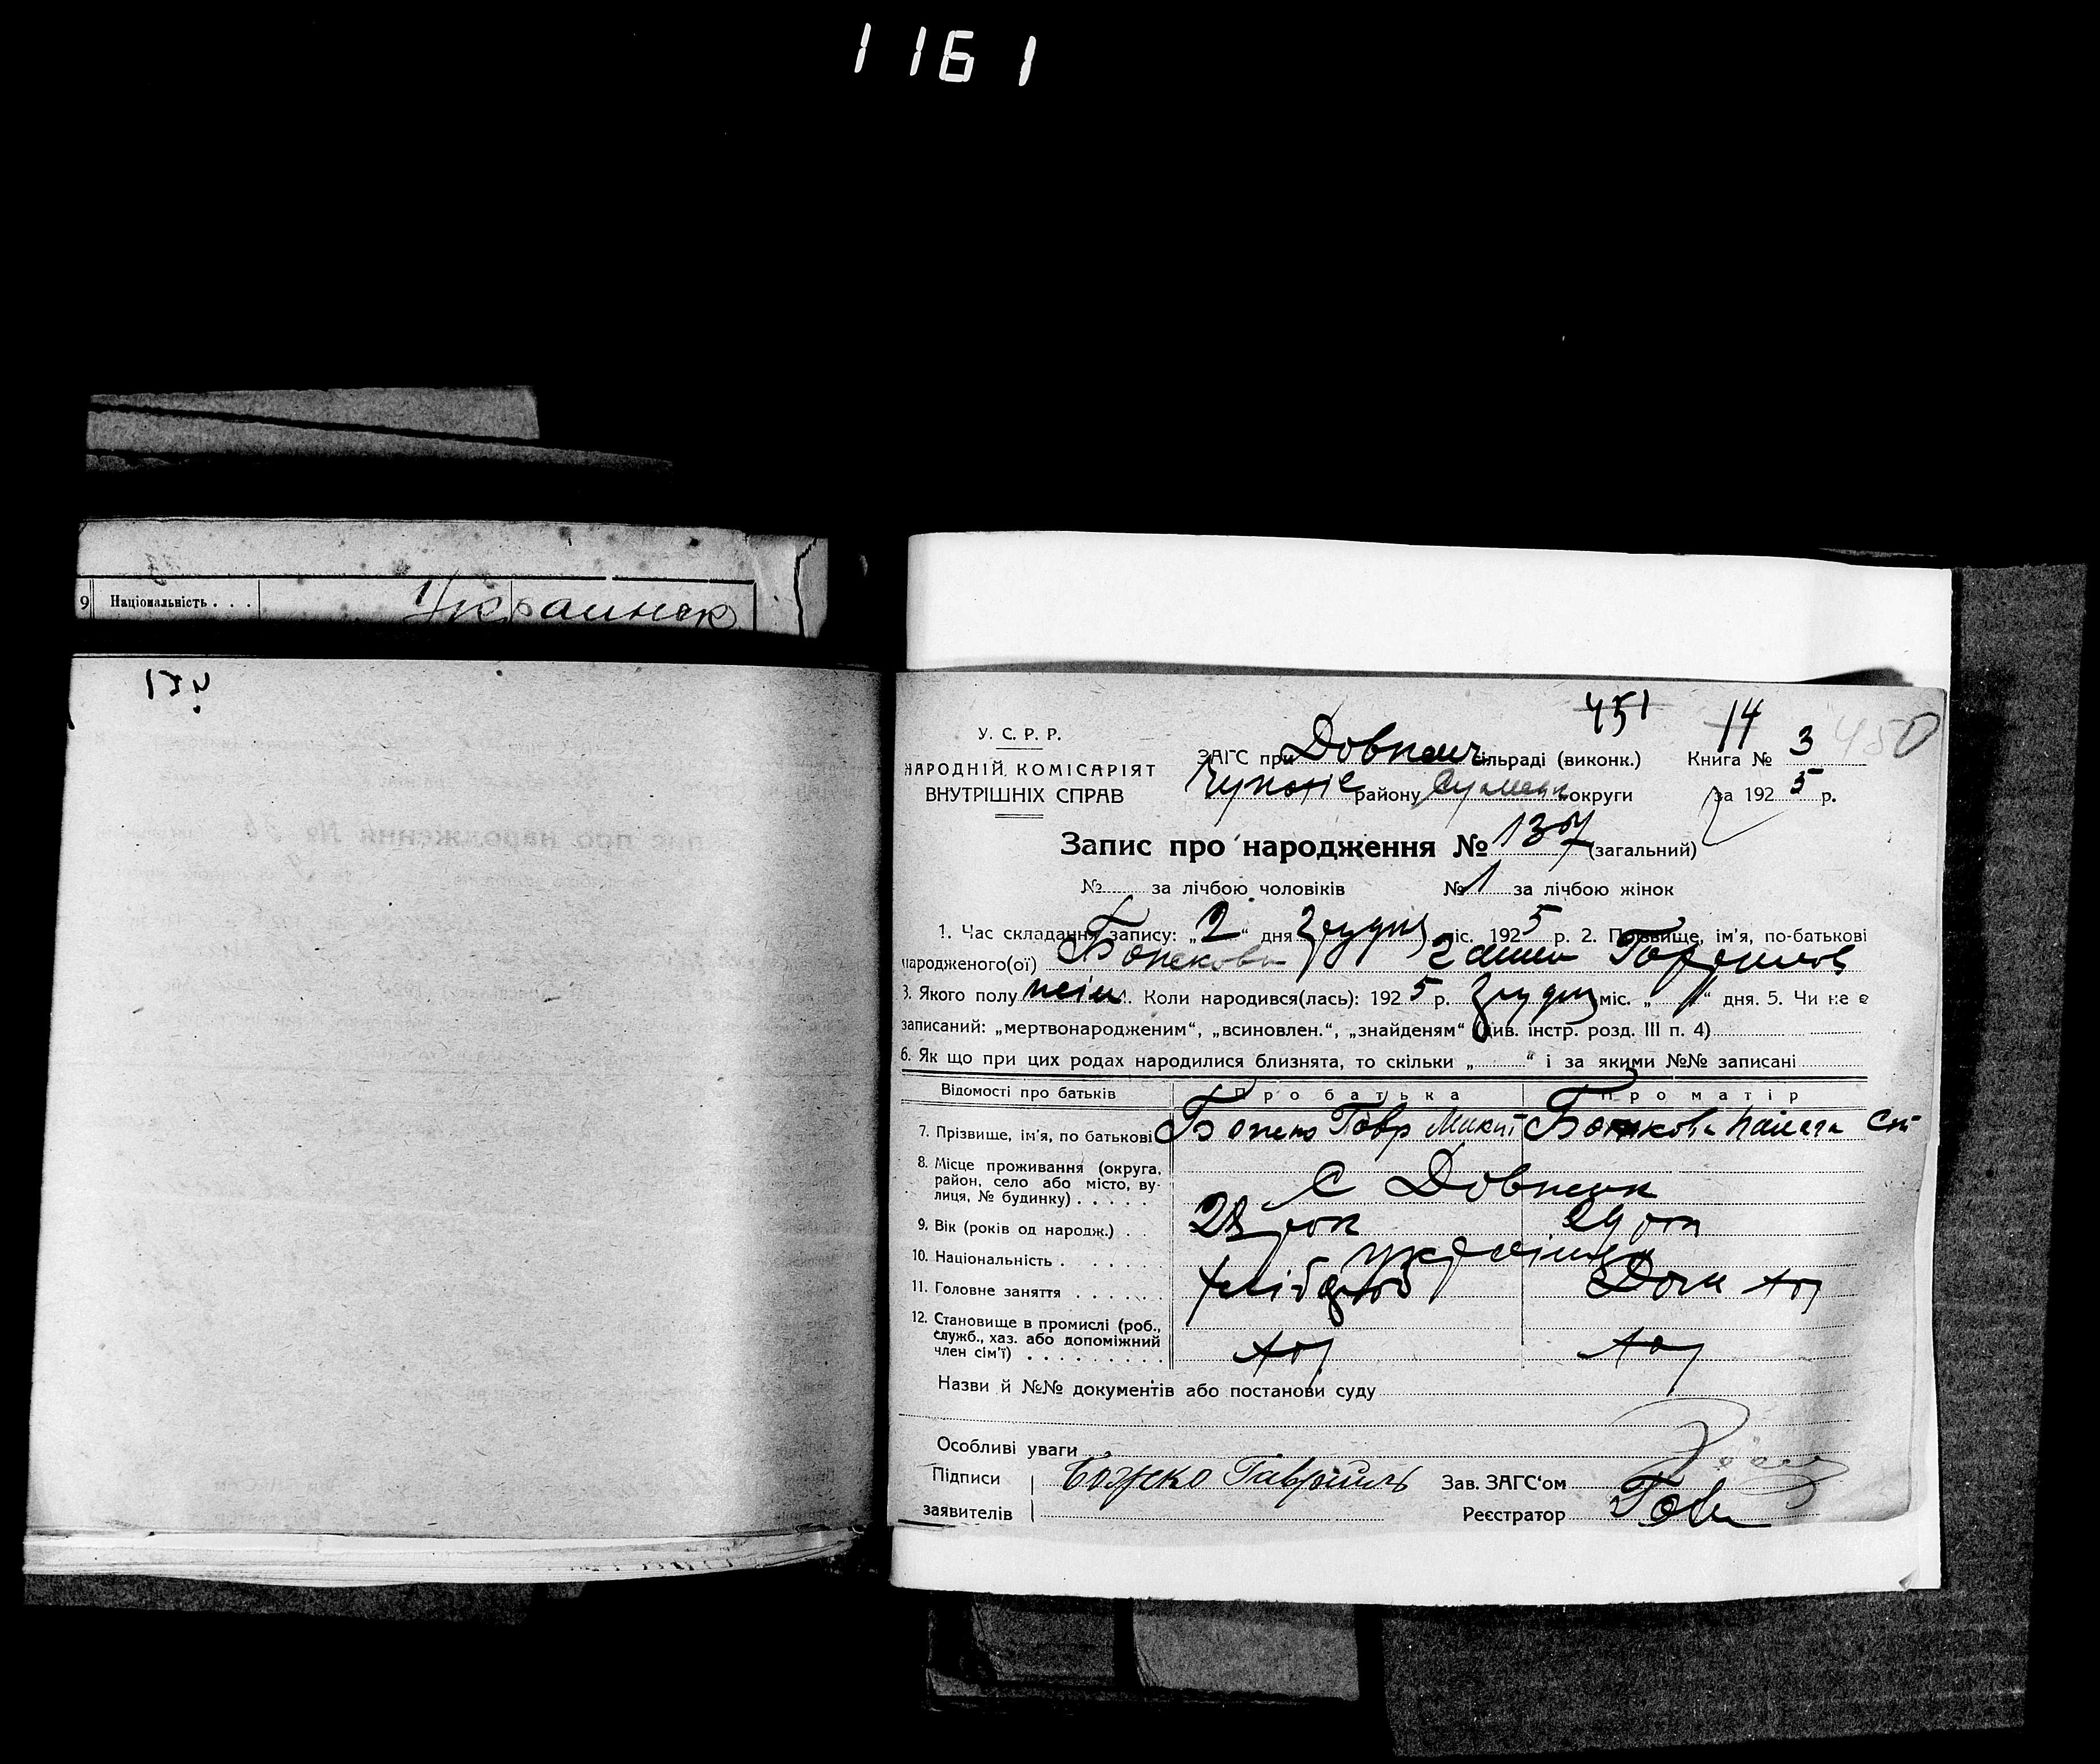 1161
9 Національність . . . Украинск
451 14 450
У. С. Р. Р.
НАРОДНІЙ КОМІСАРІЯТ
ВНУТРІШНІХ СПРАВ
ЗАГС при Довжик сільраді (виконк.) Книга № 3
району округи за 1925 р.
Запис про народження № 137 (загальний)
№ за лічбою чоловіків № 1 за лічбою жінок
1. Час складання запису: „2“ дня грудня міс. 1925 р. 2. Прізвище, ім'я, по-батькові
народженого(ої) Божкова
3. Якого полу жін. Коли народився(лась): 1925 р. грудня міс. „ “ дня. 5. Чи не є
записаний: „мертвонародженим“, „всиновлен.“, „знайденям“ (див. інстр. розд. III п. 4)
6. Як що при цих родах народилися близнята, то скільки „ “ і за якими №№ записані
Відомості про батьків Про батька Про матір
7. Прізвище, ім'я, по батькові Божко Гавр Микит Божкова
8. Місце проживання (округа, район, село або місто, вулиця, № будинку) . . . . . С Довжик
9. Вік (років од народж.) . . 28 рок 29 рок
10. Національність . . . . . . українці
11. Головне заняття . . . . . . хлібороб Дом хоз
12. Становище в промислі (роб., служб., хаз. або допоміжний член сім'ї) . . . . . . . . . хоз хоз
Назви й №№ документів або постанови суду
Особливі уваги
Підписи Божко Гавриилъ Зав. ЗАГС'ом
заявителів Реєстратор